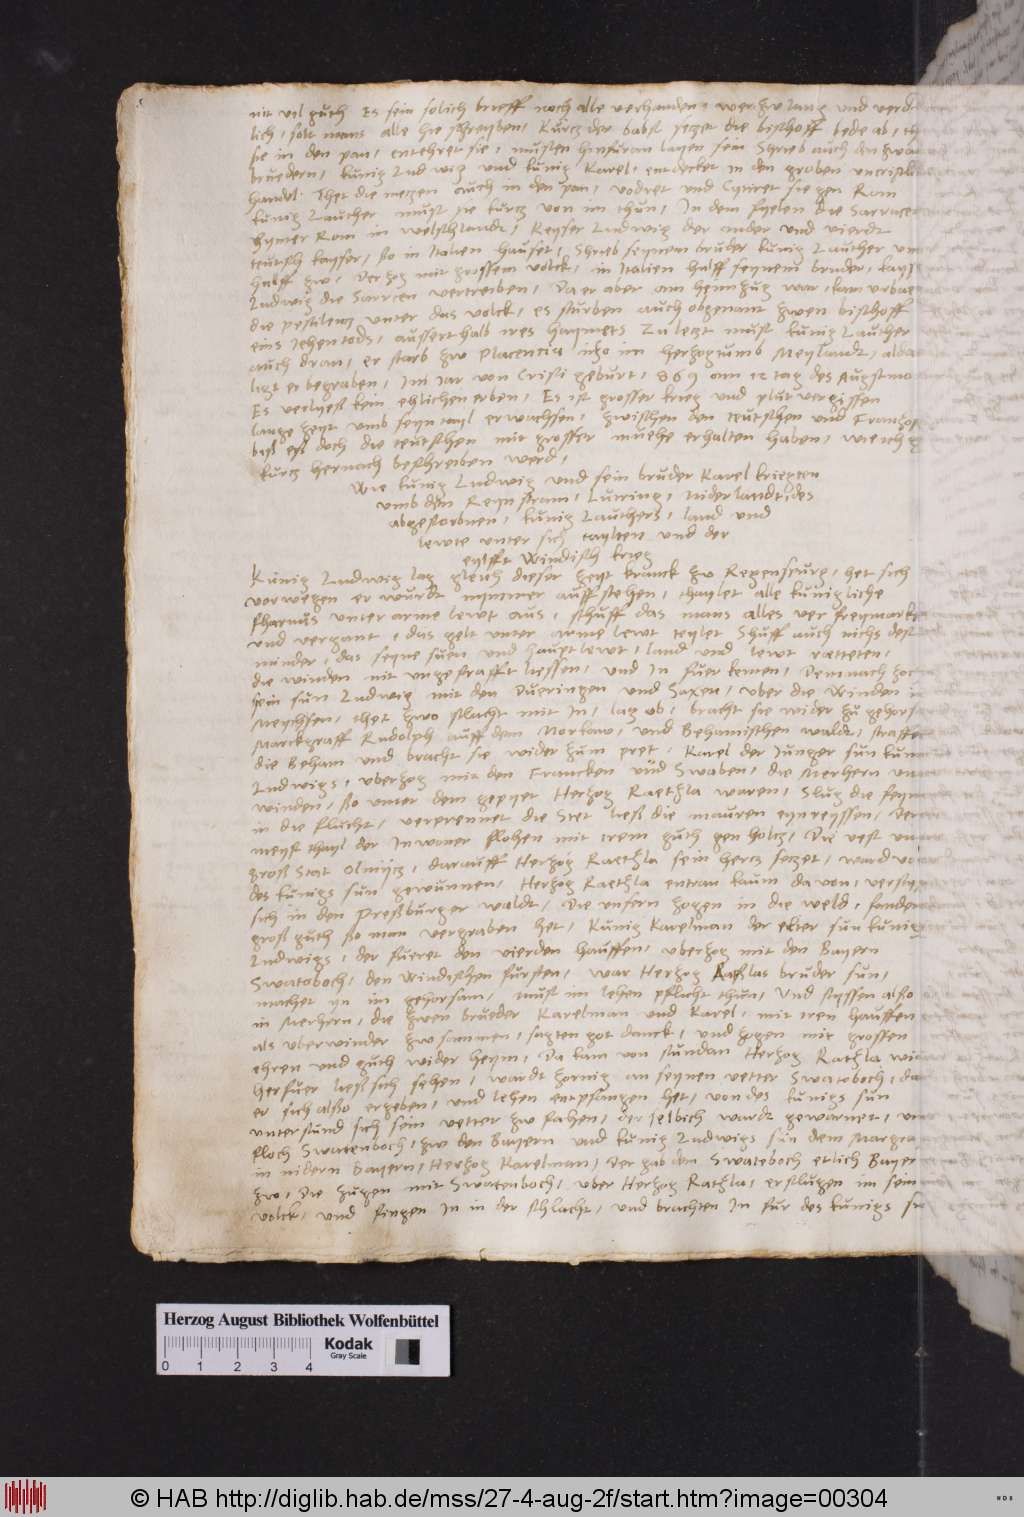 nit vil guth Es sein solich brieff noch alle verhanden, wer zw lang und verd
lich, solt mans alle hie schreyben, kurtz der babst setzet die bisthoff bede ab, th
sie in den pan, entehret sie, musten hinfuran layen sein Shrieb auch den zwa
bruedern, kunig Ludwig und kunig Karel, entdecket in den groben uncristli
handel. Thet die metzen auch in den pan, vodret und Cytiret sie gen Rom
kunig Lauther must sie kurtz von im thun, In dem fyelen die Sarracen
hymer Rom in welschlandt, Keyser Ludwig der ander und vierdt
teutsch kayser, so in Italien hauset, Shrieb seynem bruder kunig Lauther umb
hilff zw, Der zog mit grossem volck, in Italien halff seynem bruder, kays
Ludwig die Sarrcen vertreiben, Da er aber am heimzug war, kam urbar
die pestilentz unter das volck, es sturben auch obgenant zwen bisthoff
eins jehen tods, ausserthalb ires haymets Zu letzt must kunig Lauther
auch dran, er starb zw Placencia itzo im herzogtumb Meylandt, alda
ligt er begraben, Im iar von Cristi geburt, 869 am 12 tag des Augstmo
Es verlyest kein ehlichen erben, Es ist grosser krieg und plutvergissen
lange zeyt umb seyn tayl erwachsen, zwischen den teutschen und Franzos
biss ess doch die teutschen mit grosser muehe erhalten haben, wie ich
kurtz hernach beschreiben werd,
Wie kunig Ludwig und sein bruder Karel kriegten
umb den Reynstram, Lutring, niderlandt, des
abgestorbnen, kunig Lauthers, land und
lewte unter sich taylten und der
eylfft Windisch krieg
Kunig Ludwig lag gleich dieser zeyt kranck zw Regenspurg, het sich
vorwegen er wurdt nymmer auff stehen, thaylet alle kunigliche
fharnus unter arme lewt aus, schuff das mans alles ver freymarkt
und vergant, das gelt unter arme lewt teylet Shuff auch nichs dest
minder, das seyne suen und hauptlewt, land und lewt retteten,
die winden nit ungestrafft liessen, und In fuer kemen, Demnach zoc
sein sun Ludwig mit den Dueringen und Saxen, uber die Winden i
Meychsen, thet zwo schlacht mit In, lag ob, bracht sie wider zu gehors
Marckgraff Rudolph auff dem Norkaw, und Behamischen waldt, straffet
die Beham und bracht sie wider zum pret, Karel der Junger sun kuni
Ludwigs, uberzog mit den Francken und Swaben, die Merhern und
winden, so unter dem gepyet Herzog Raethla waren, Slug die feyn
in die flucht, verprennet die Stet liess die mauren eynreyssen, Der
meyst thayl der Inwoner flohen mit irem guth gen holtz, Die vest un
gross Stat Olmytz, darauff Herzog Raethla sein hertz setzet, ward vo
des kunigs sun gewunnen, Herzog Raethla entran kaum davon, versteck
sich in den Pressburger waldt, Die unsern zogen in die weld, fanden
gross guth so man vergraben het, Kunig Karelman der elter sun kunig
Ludwigs, der fueret den vierden hauffen, uberzog mit den Bayern
Swatoboch, den Windischen fursten, war Herzog Raethlas bruder sun,
machet yn im gehorsam, must im lehen pflicht thun, Und styssen also
in Merhern, die zwen brueder Karelman und Karel, mit iren hauffen
als uberwinder zwsammen, sagten got danck, und zogen mit grossen
ehren und guth wider heym, Da kam von stundan Herzog Rathla wid
herfuer liess sich sehen, wardt zornig an seynen vetter Swatoboch, da
er sich also ergeben, und lehen entpfangen het, von des kunigs sun
unterstund sich sein vetter zw fahen, der selbich wardt gewarnet, un
floch Swatenboch, zw den Bayern und kunig Ludwigs sun dem Margra
in nidern Bayern, Herzog Karelman, Der gab dem Swateboch etlich Bayer
zwo, Die zugen mit Swatenboch, uber Herzog Rathla, erslugen im sein
volck, und fingen In in der schlacht, und brachten In fur des kunigs su
Herzog August Bibliothek Wolfenbüttel
Kodak
Gray Scale
0 1 2 3 4
© HAB http://diglib.hab.de/mss/27-4-aug-2f/start.htm?image=00304